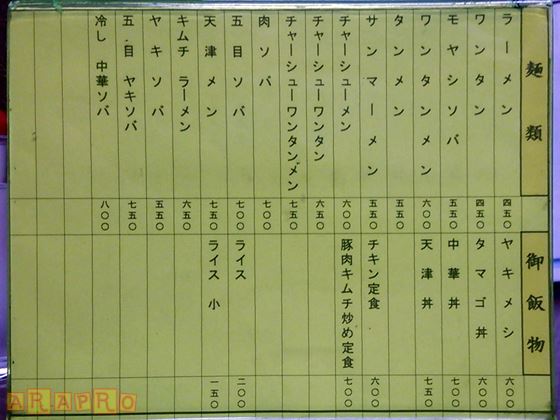 麺類
ラーメン 四五〇
ワンタン 四五〇
モヤシソバ 五五〇
ワンタンメン 六〇〇
タンメン 五五〇
サンマーメン 五五〇
チャーシューメン 六〇〇
チャーシューワンタン 六五〇
チャーシューワンタンメン 七五〇
肉ソバ 七〇〇
五目ソバ 七〇〇
天津メン 七五〇
キムチ ラーメン 六五〇
ヤキソバ 五五〇
五目 ヤキソバ 七五〇
冷し 中華ソバ 八〇〇
御飯物
ヤキメシ 六〇〇
タマゴ丼 六〇〇
中華丼 七〇〇
天津丼 七五〇
チキン定食 六〇〇
豚肉キムチ炒め定食 七〇〇
ライス 二〇〇
ライス 小 一五〇
ARAPRO